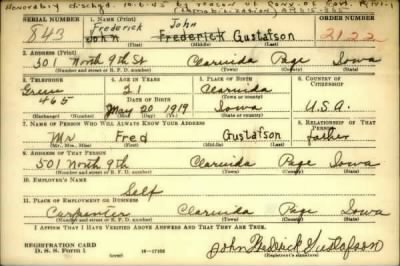 Honorably dischgd. 10-6-45 by reason of Conv. of Govt.
(Demobilization)
SERIAL NUMBER 1. Name (Print) ORDER NUMBER
Frederick John
843 John Frederick Gustafson 2122
(First) (Middle) (Last)
2. Address (Print)
501 North 9th St Clarinda Page Iowa
(Number and street or R. F. D. number) (Town) (County) (State)
3. Telephone 4. Age in Years 5. Place of Birth 6. Country of Citizenship
Green 21 Clarinda
465 Date of Birth (Town or county)
May 20 1919 Iowa U.S.A.
(Exchange) (Number) (Mo.) (Day) (Yr.) (State or country)
7. Name of Person Who Will Always Know Your Address 8. Relationship of That Person
Mr Fred Gustafson father
(Mr., Mrs., Miss) (First) (Middle) (Last)
9. Address of That Person
501 North 9th Clarinda Page Iowa
(Number and street or R. F. D. number) (Town) (County) (State)
10. Employer's Name
Self
11. Place of Employment or Business
Carpenter Clarinda Page Iowa
(Number and street or R. F. D. number) (Town) (County) (State)
I Affirm That I Have Verified Above Answers and That They Are True.
REGISTRATION CARD
D. S. S. Form 1 (over) John Fredrick Gustafson
(Registrant's signature)